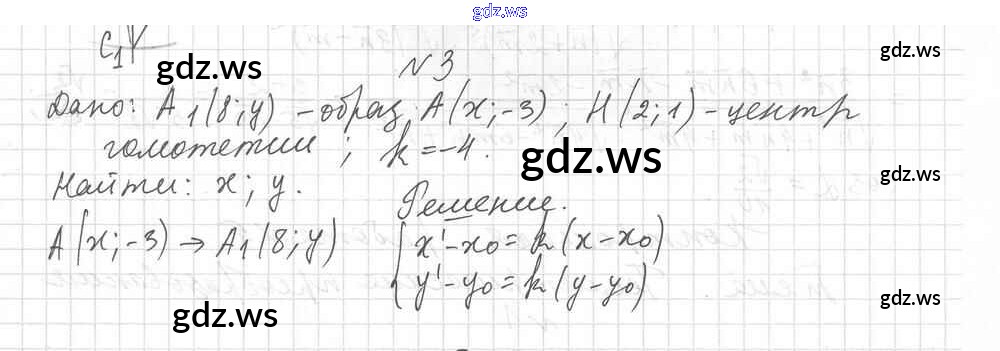 gdz.ws
C₁
gdz.ws
gdz.ws
N 3
Дано: A₁(8; y) – образ A(x; -3); H(2; 1) – центр
гомотетии; k = -4.
gdz.ws
gdz.ws
Найти: x; y.
Решение.
A(x; -3) → A₁(8; y) { x' - x₀ = k(x - x₀)
y' - y₀ = k(y - y₀)
gdz.ws
gdz.ws